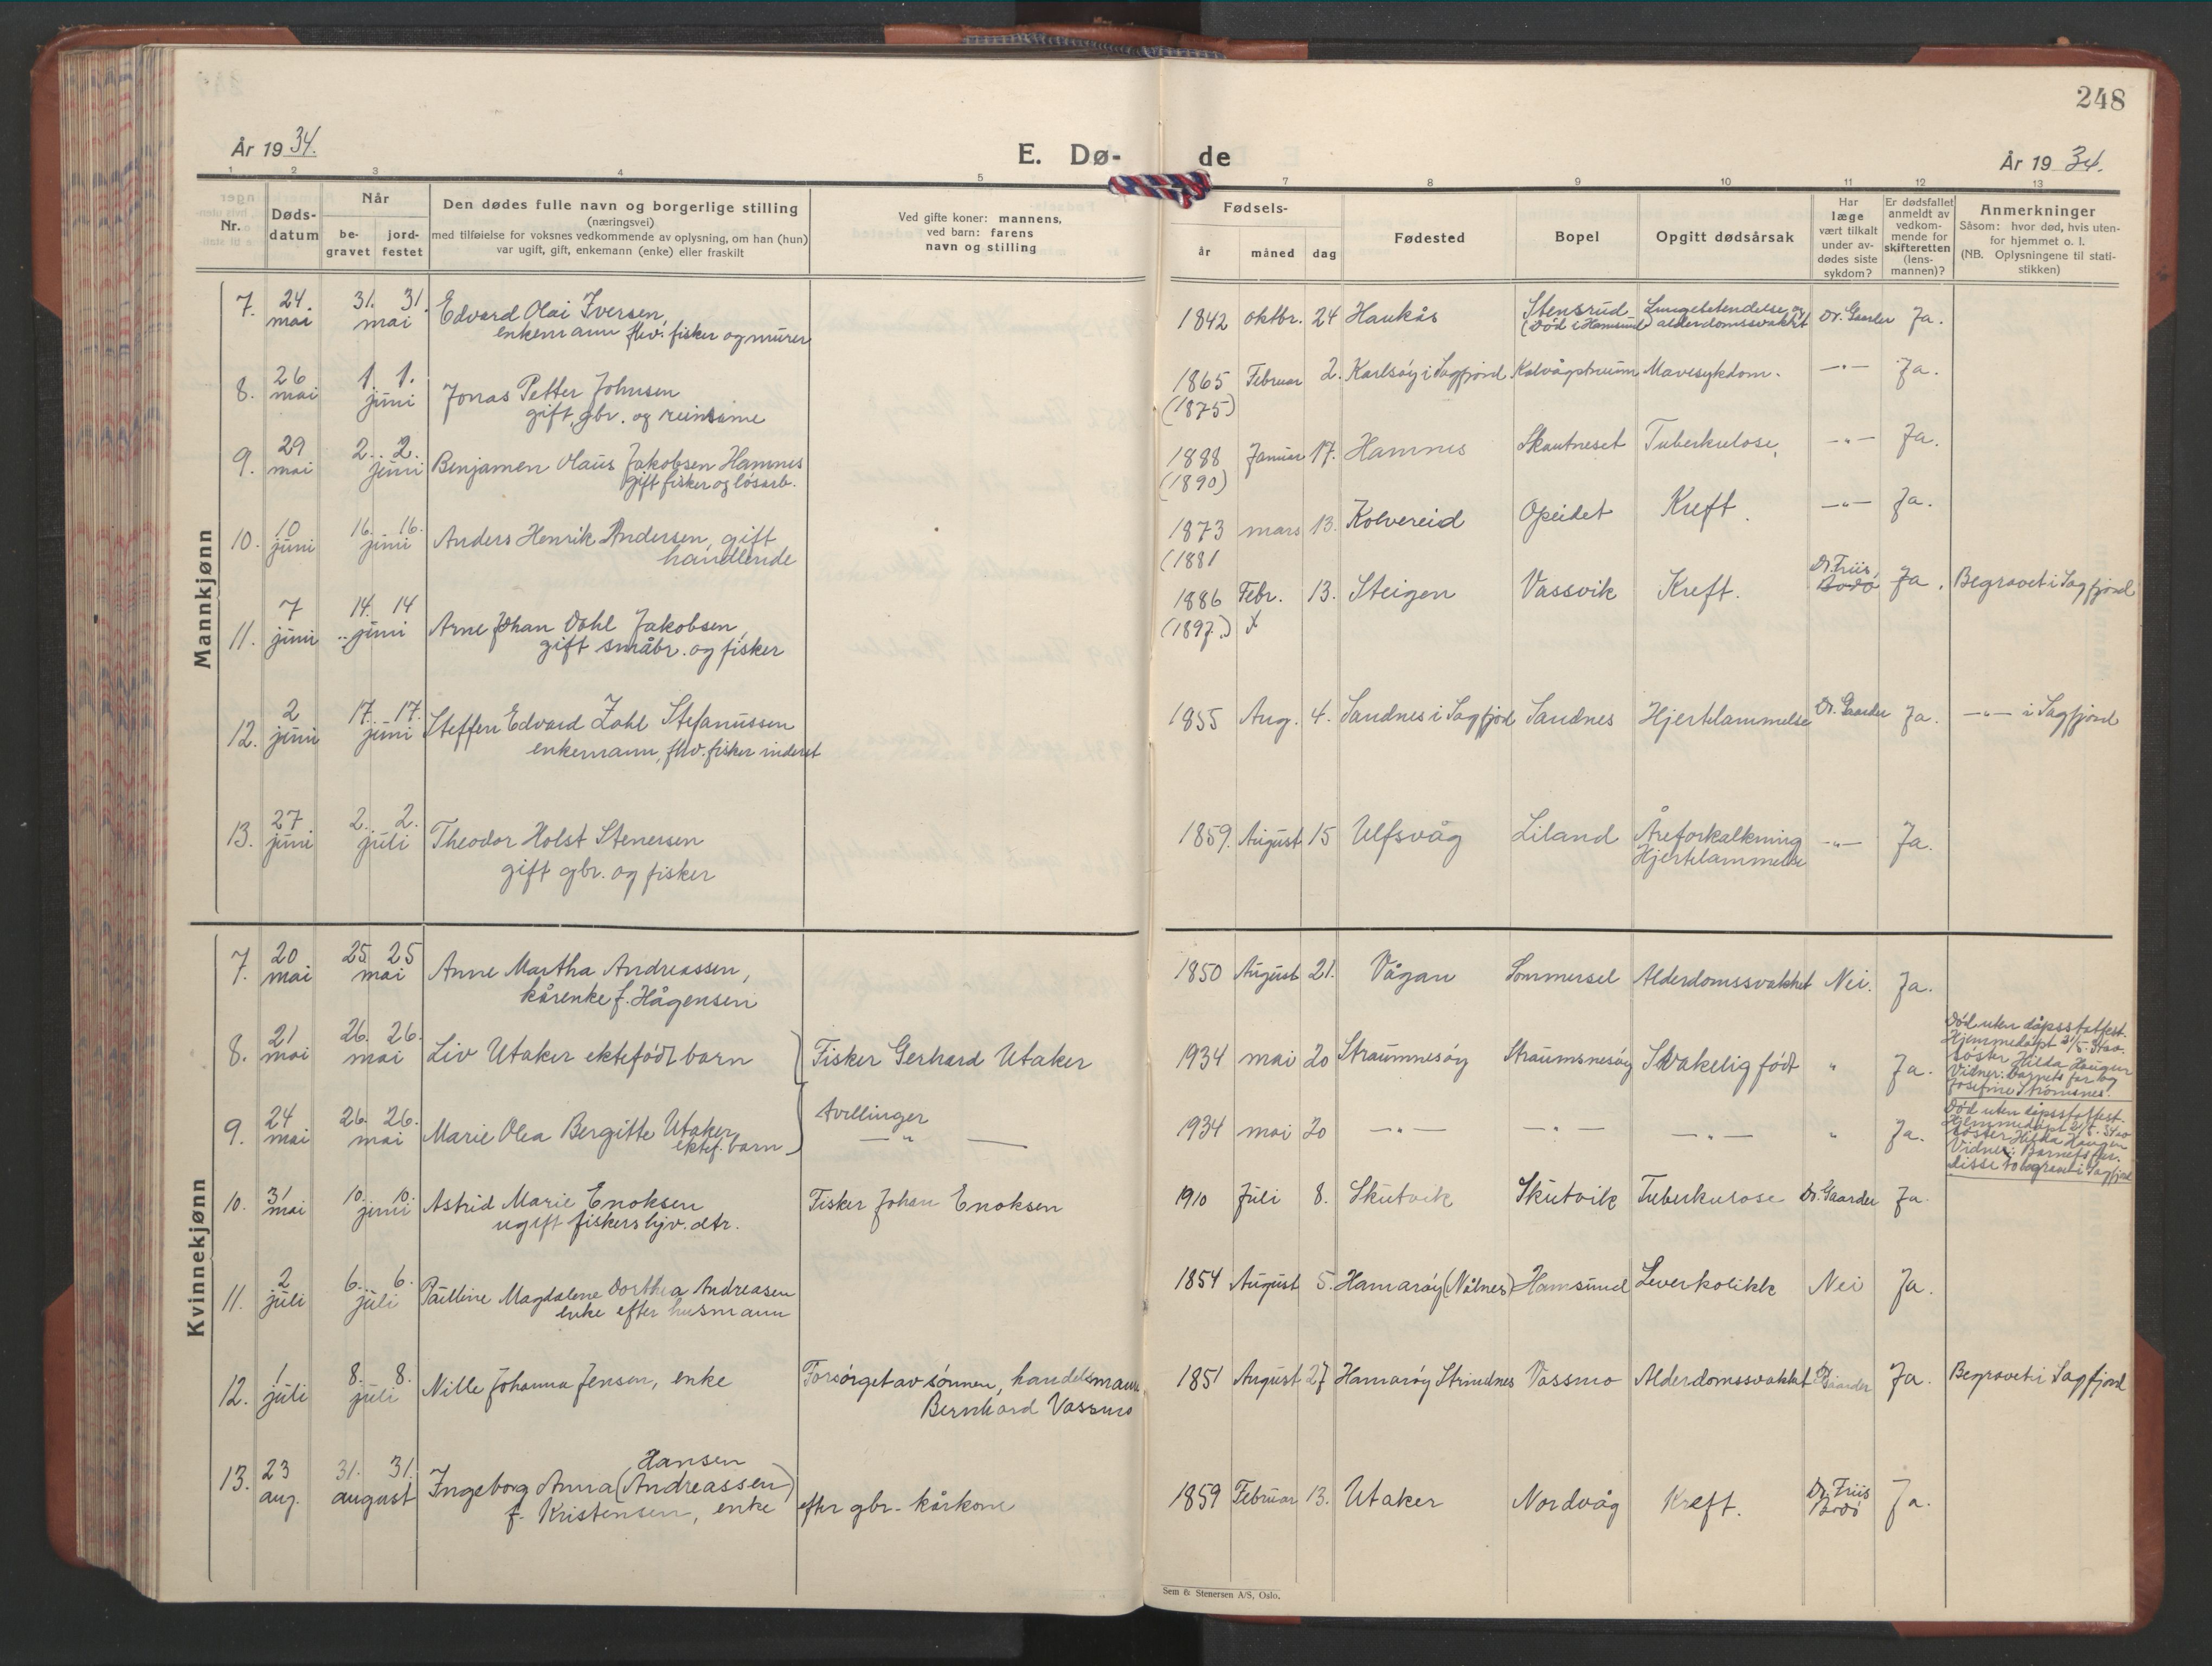 248
År 1934.
E. Dø-
de
År 1934.
1 2 3 4 5 7 8 9 10 11 12 13
Nr.
Døds-
datum
Når
be-
gravet
jord-
festet
Den dødes fulle navn og borgerlige stilling
(næringsvei)
med tilføielse for voksnes vedkommende av oplysning, om han (hun)
var ugift, gift, enkemann (enke) eller fraskilt
Ved gifte koner: mannens,
ved barn: farens
navn og stilling
Fødsels-
år måned dag
Fødested
Bopel
Opgitt dødsårsak
Har
læge
vært tilkalt
under av-
dødes siste
sykdom?
Er dødsfallet
anmeldt av
vedkom-
mende for
skifteretten
(lens-
mannen)?
Anmerkninger
Såsom: hvor død, hvis uten-
for hjemmet o. l.
(NB. Oplysningene til stati-
stikken)
Mannkjønn
7. 24. mai 31. 31. mai Edvard Olai Iversen,
enkemann fhv. fisker og murer
1842 oktbr. 24 Haukås Stensrud (Død i Hamsund) Lungebetendelse og alderdomssvakhet Dr. Gaarder Ja.
8. 26 mai 1. 1. juni Jonas Petter Johnsen
gift, gbr. og
1865 Februar 2. Karlsøy i Sagfjord Mavesykdom. —"— Ja.
(1875)
9. 29 mai 2. 2. juni Benjamen Olaus Jakobsen Hamnes
gift fisker og løsarb.
1888 Januar 17. Hamnes Skautneset Tuberkulose, —"— Ja.
(1890)
10. 10 juni 16. 16. juni Anders Henrik Andersen, gift
handlende
1873 mars 13. Kolvereid Opeidet Kreft. —"— Ja.
(1881
11. 7 juni 14. 14 juni Arne Johan Dahl Jakobsen,
gift småbr. og fisker
1886 Febr. 13. Steigen Vassvik Kreft. Dr. Friis, Bodø Ja. Begravet i Sagfjord
(1897.) x
12. 2 juni 17. 17. juni Steffen Edvard Zahl Stefanussen
enkemann, fhv. fisker inderst
1855 Aug. 4. Sandnes i Sagfjord Sandnes Hjertelammelse Dr. Gaarder Ja. —"— i Sagfjord
13. 27 juni 2. 2. juli Theodor Holst Stenersen
gift gbr. og fisker
1859. August 15 Ulfsvåg Liland Åreforkalkning
Hjertelammelse —"— Ja.
Kvinnekjønn
7. 20 mai 25 25 mai Anne Martha Andreassen,
kårenke f. Hågensen
1850 August 21. Vågan Sommersel Alderdomssvakhet Nei. Ja.
8. 21 mai 26. 26. mai Liv Utaker ektefødt barn Fisker Gerhard Utaker
1934 mai 20 Straumnesøy Straumsnesøy Svakelig født " Ja.
Død uten dåpsstatfest.
Hjemmedøpt 21/5-34 av
søster Hilda Haugen
Vidner: barnets far og
Josefine Strömsnes.
9. 24 mai 26. 26. mai Marie Olea Bergitte Utaker
ektef. barn
tvillinger
—"—
1934 mai 20 —"— —"— —"— " Ja.
Død uten dåpsstatfest.
Hjemmedøpt 21/5-34 av
søster Hilda Haugen
Vidner: Barnets far.
disse to begravet i Sagfjord
10. 31 mai 10. 10. juni Astrid Marie Enoksen
ugift fiskers hjv. dtr.
Fisker Johan Enoksen
1910 Juli 8. Skutvik Skutvik Tuberkulose Dr. Gaarder Ja.
11. 2 juli 6. 6. juli Pauline Magdalene Dorthea Andreasen
enke efter husmann
1854 August 5. Hamarøy (Nålnes) Hamsund Leverkolikk Nei Ja.
12. 1 juli 8. 8. juli Nille Johanna Jensen, enke Forsørget av sønnen, handelsmann
Bernhard Vassmo
1851 August 27 Hamarøy Strindnes Vassmo Alderdomssvakhet Dr. Gaarder Ja. Begravet i Sagfjord
13. 23 aug. 31. 31. august Hansen
Ingeborg Anna (Andreassen)
f. Kristensen, enke efter gbr. - kårkone
1859 Februar 13. Utaker Nordvåg Kreft. Dr. Friis Bodø Ja.
Sem & Stenersen A/S, Oslo.